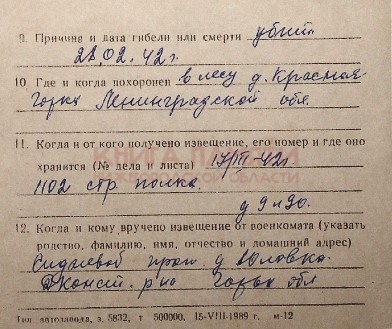 9. Причина и дата гибели или смерти убит
28.02.42г.
10. Где и когда похоронен в лесу д. Красная
Горка Ленинградской обл.
11. Когда и от кого получено извещение, его номер и где оно
хранится (№ дела и листа) 42г.
1102 стр. полка.
12. Когда и кому вручено извещение от военкомата (указать
родство, фамилию, имя, отчество и домашний адрес)
прож. д.
Д.Конст. р-но Горьк. обл
Тип. автозавода, з. 5832, т 500000, 15-VIII-1989 г. м-12